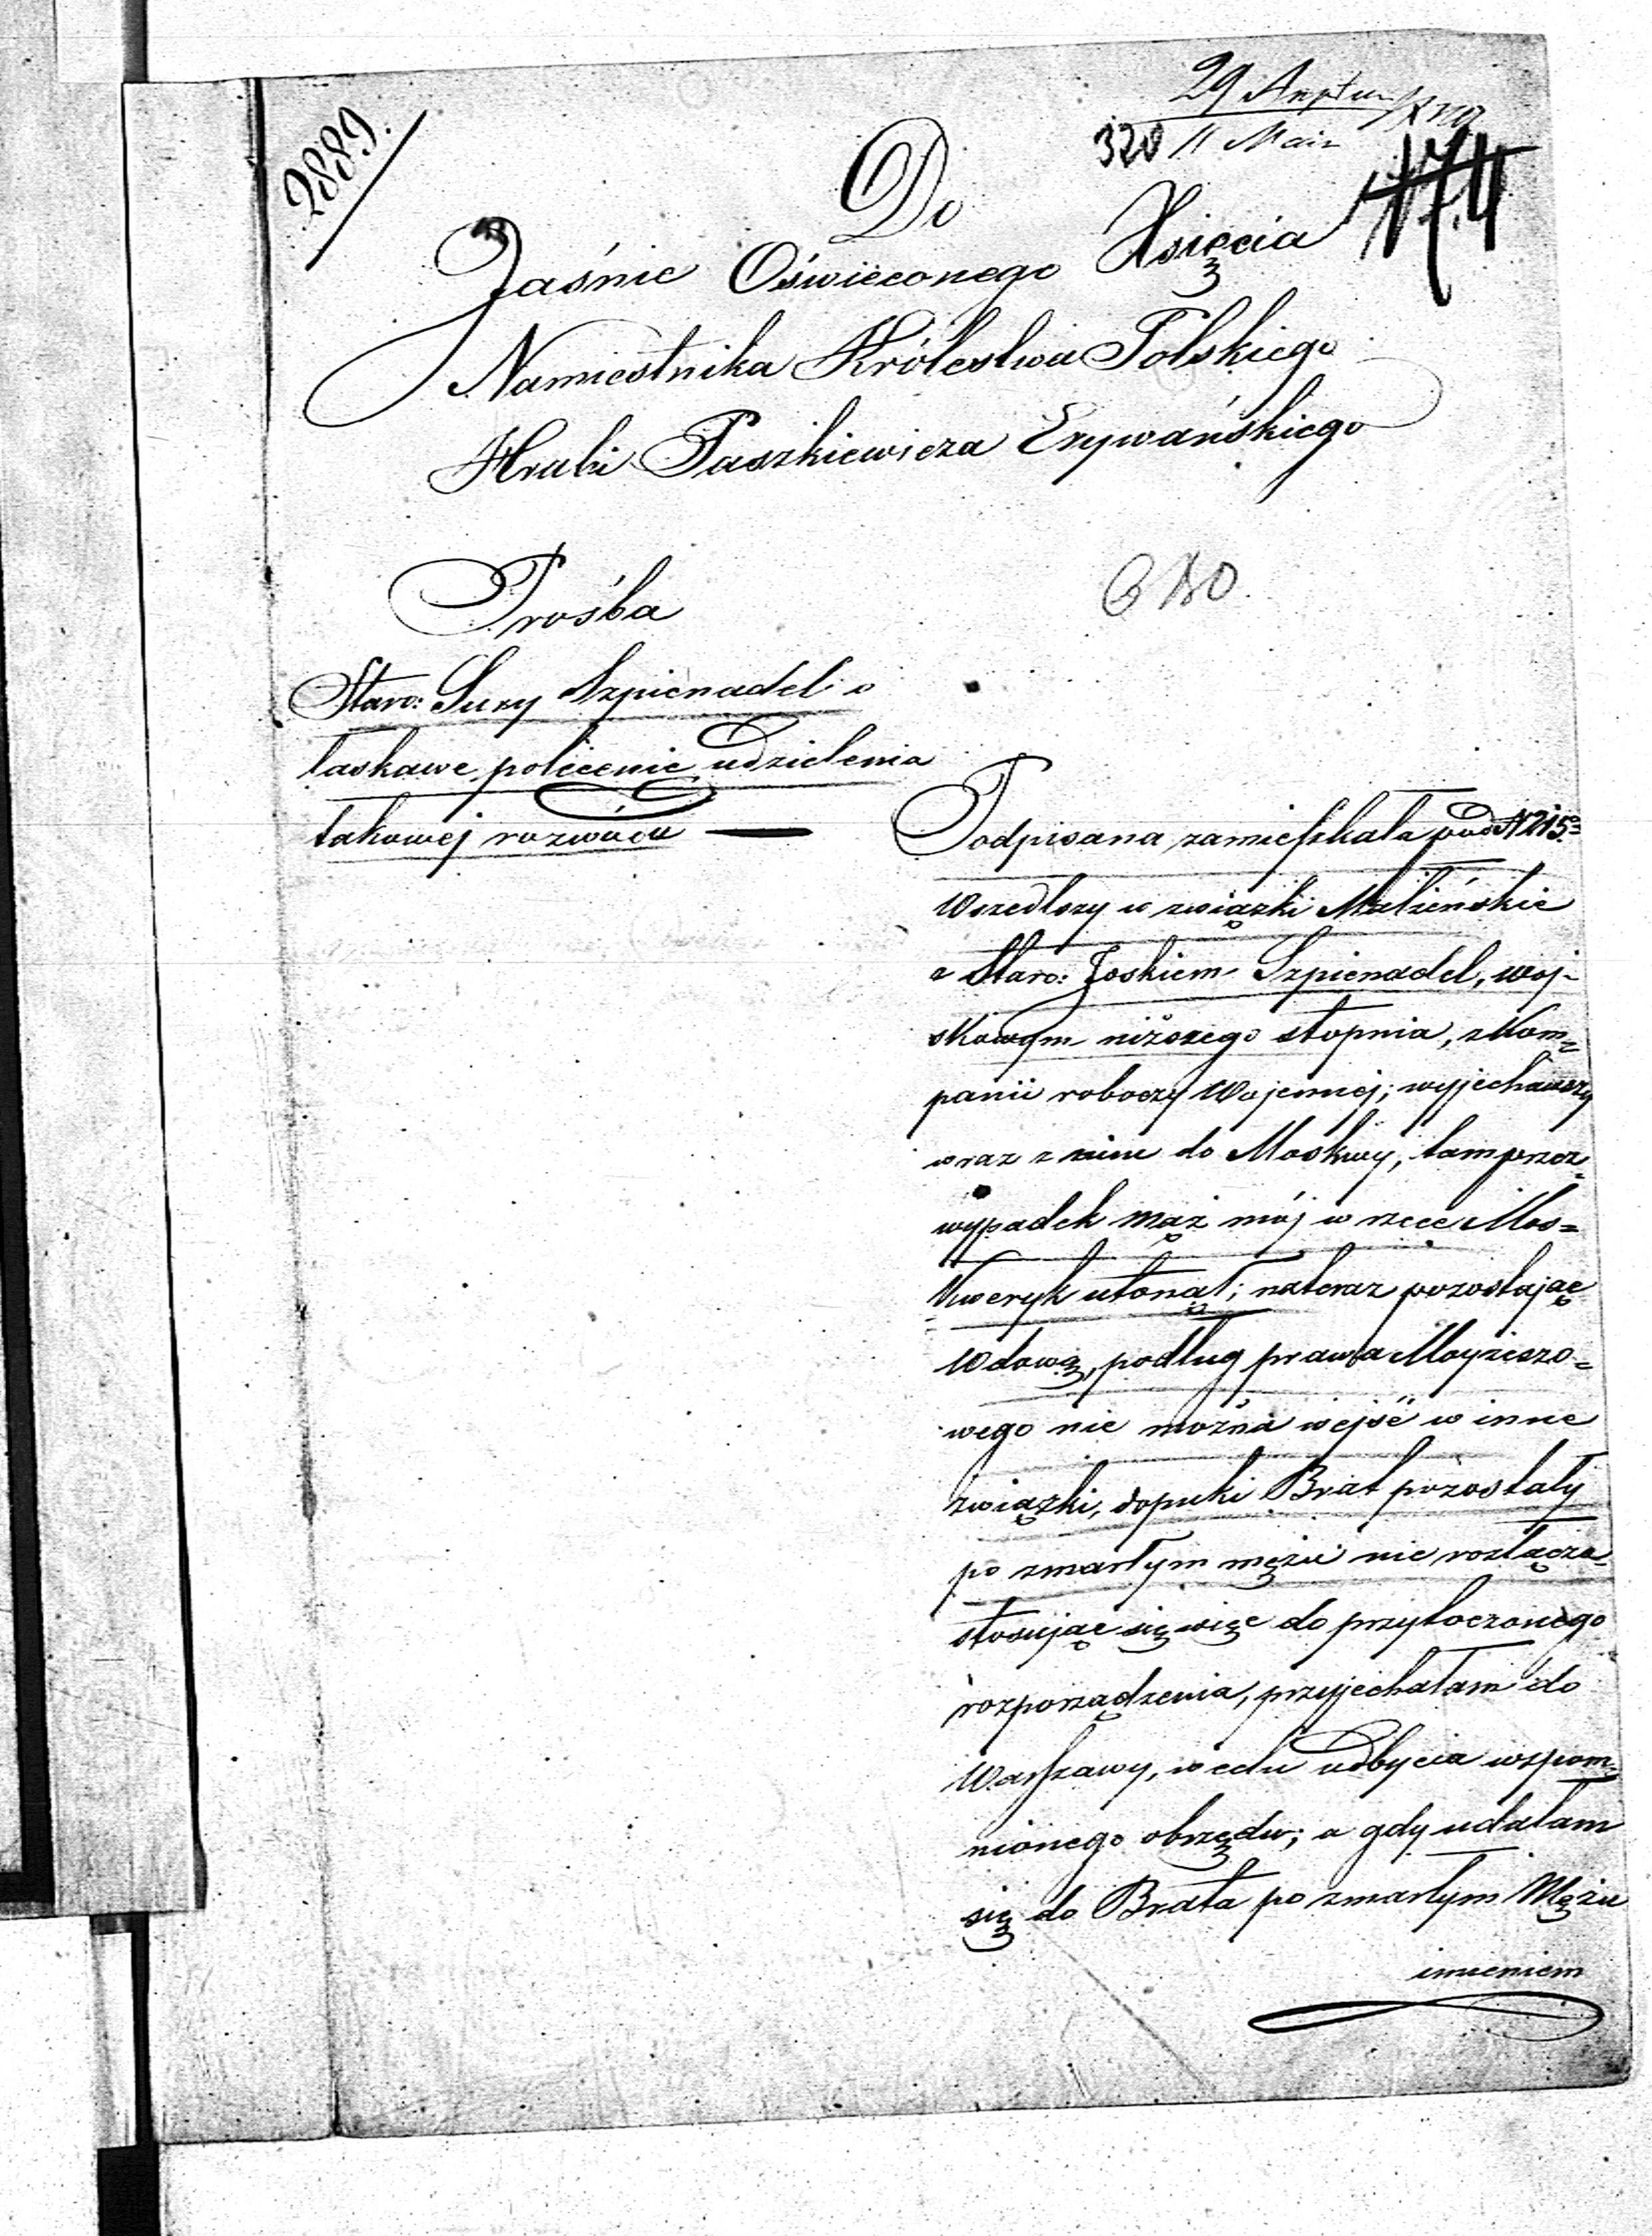 2889.
29
320 11 Maia
174
Do
Jaśnie Oświeconego Xsięcia
Namiestnika Królestwa Polskiego
Hrabi Paszkiewicza Erywańskiego
Prośba
Staro: Sury Szpienadel o
łaskawe polecenie udzielenia
takowej rozwodu —
Podpisana zamieszkała pod N 215
Wszedłszy w związki Małżeńskie
z Staro: Joskiem Szpienadel, woj-
skowym niższego stopnia, z Kom=
panii roboczy Wojennej; wyjechawszy
wraz z nim do Moskwy, tam przez
wypadek mąż mój w rzece Mos=
kweryk utonął; nateraz pozostając
Wdową, podług prawa Mojżeszo=
wego nie można wejść w inne
związki, dopuki Brat pozostały
po zmarłym mężu nie rozłącza
stosując się więc do przytoczonego
rozporządzenia, przyjechałam do
Warszawy, w celu odbycia wspom=
nionego obrzędu; a gdy udałam
się do Brata po zmarłym Mężu
imieniem